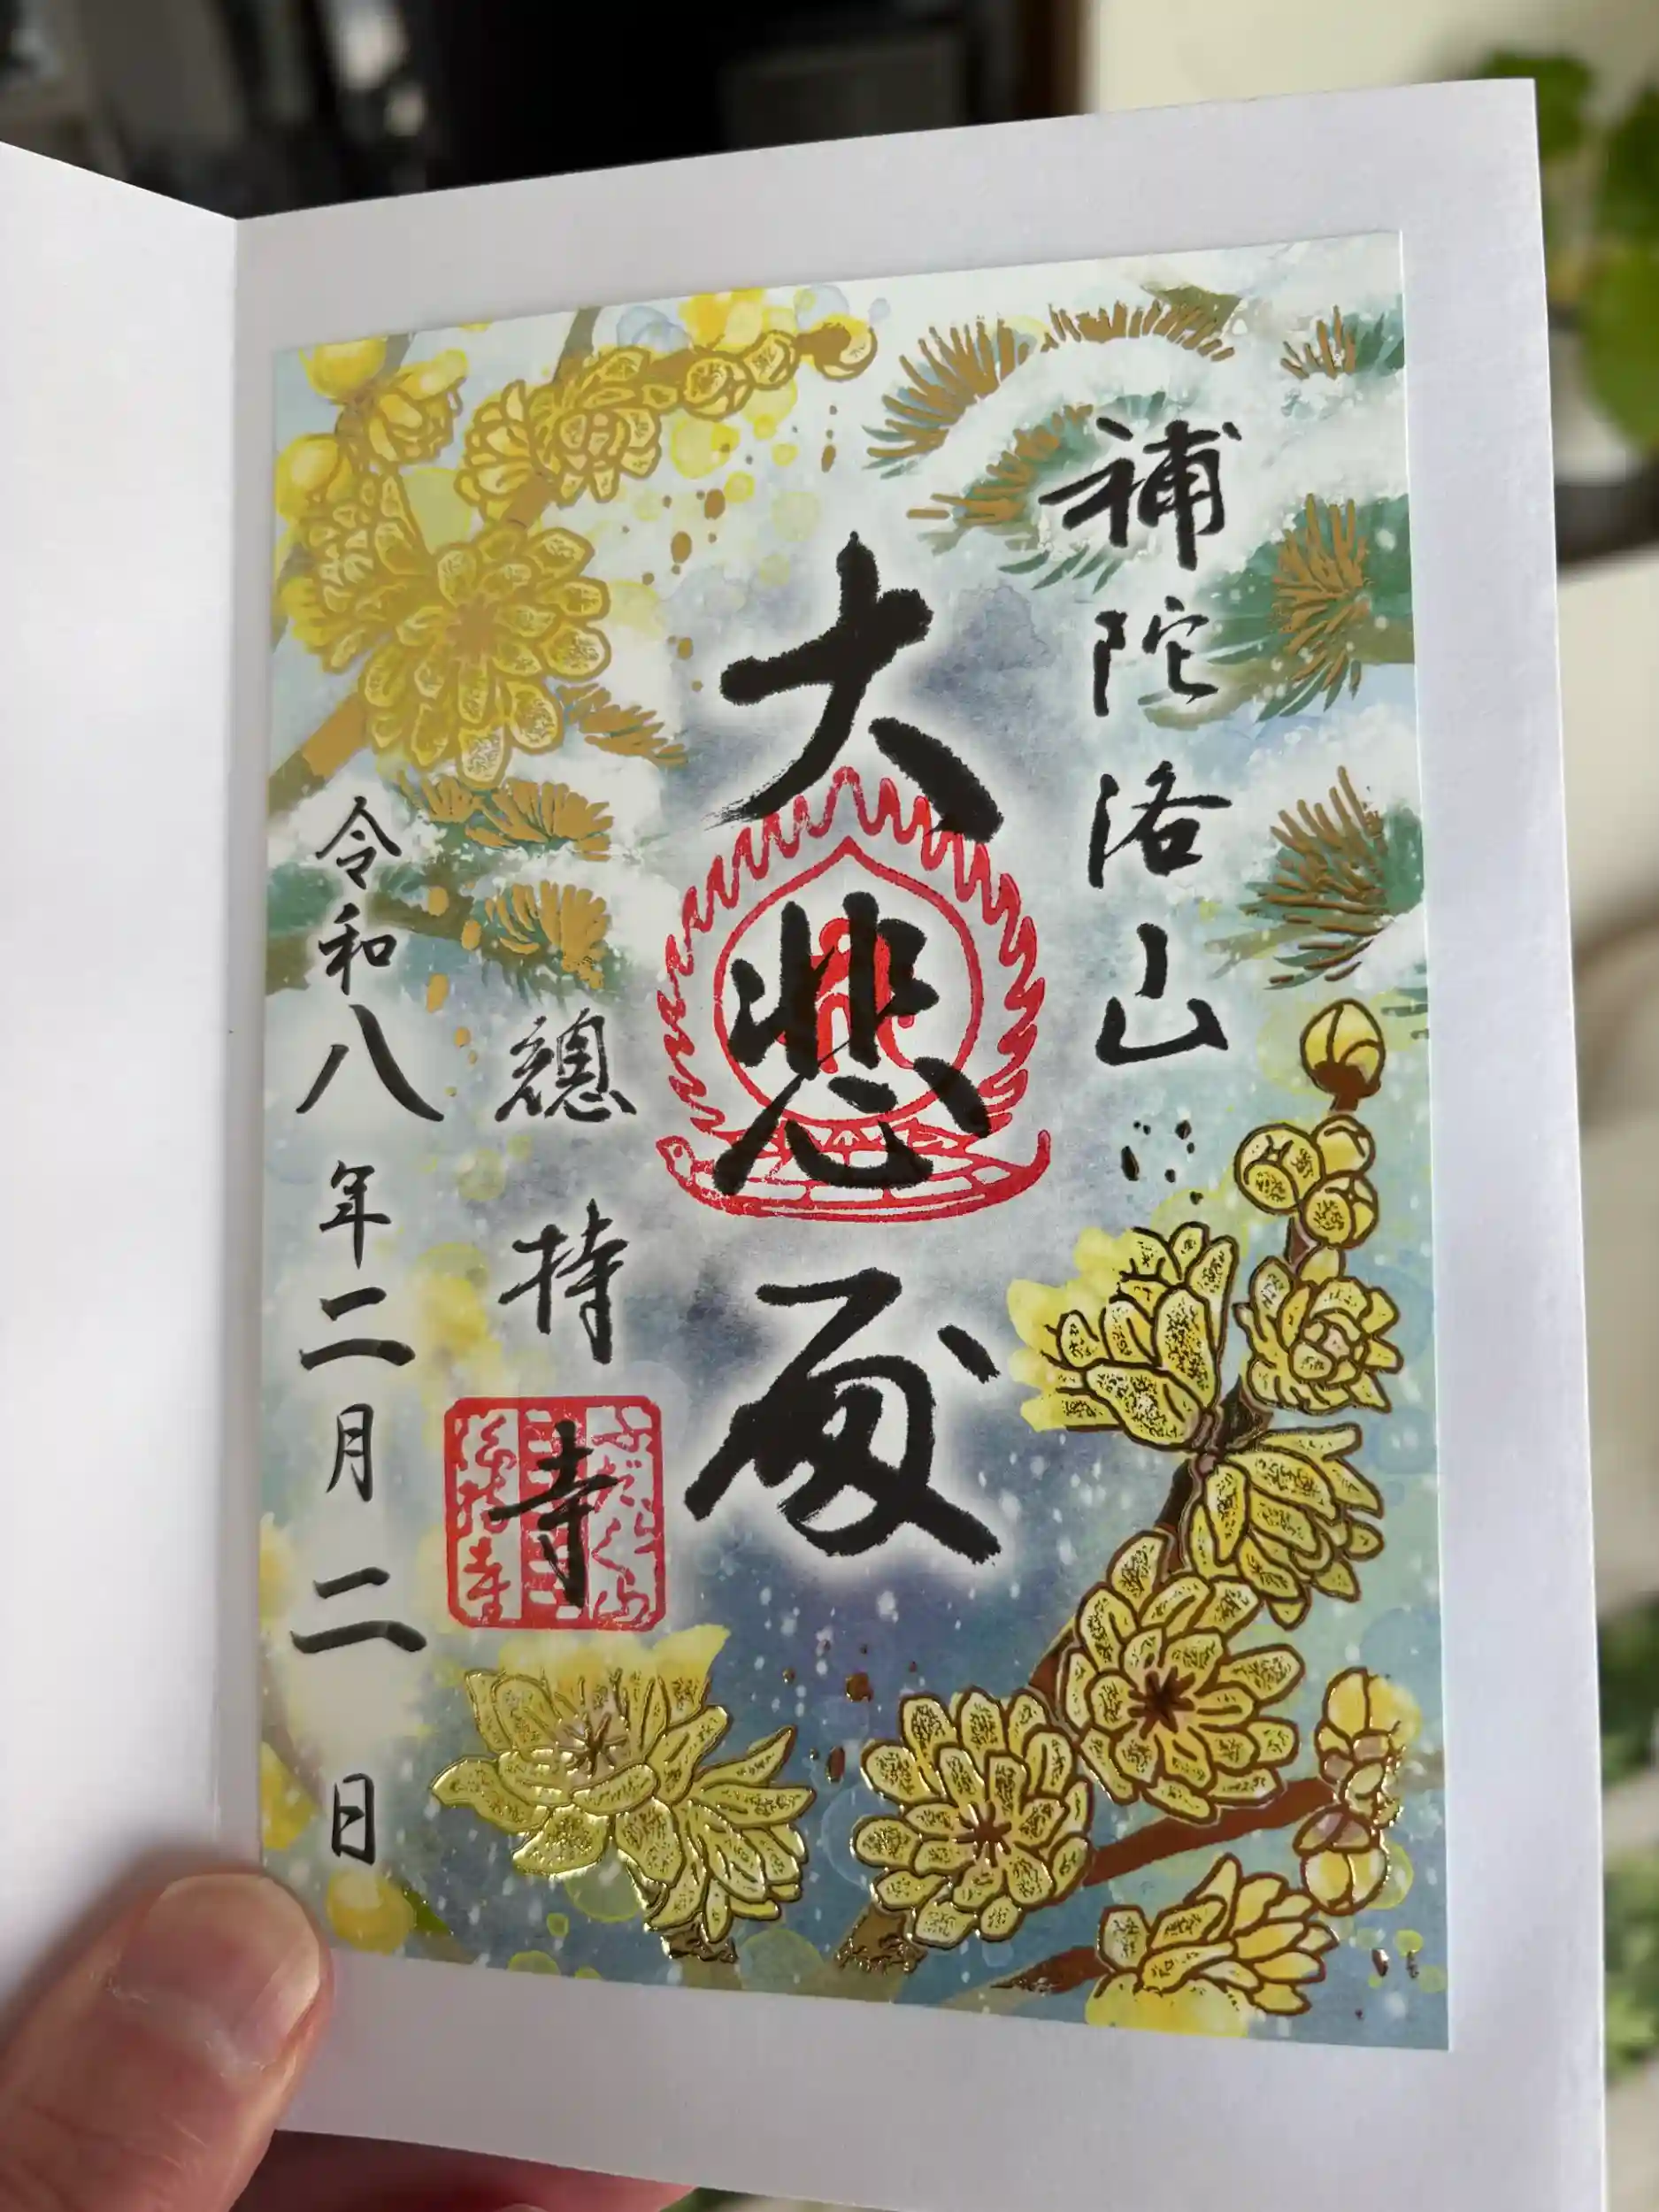 補陀洛山
大悲殿
總持寺
令和八年二月二日